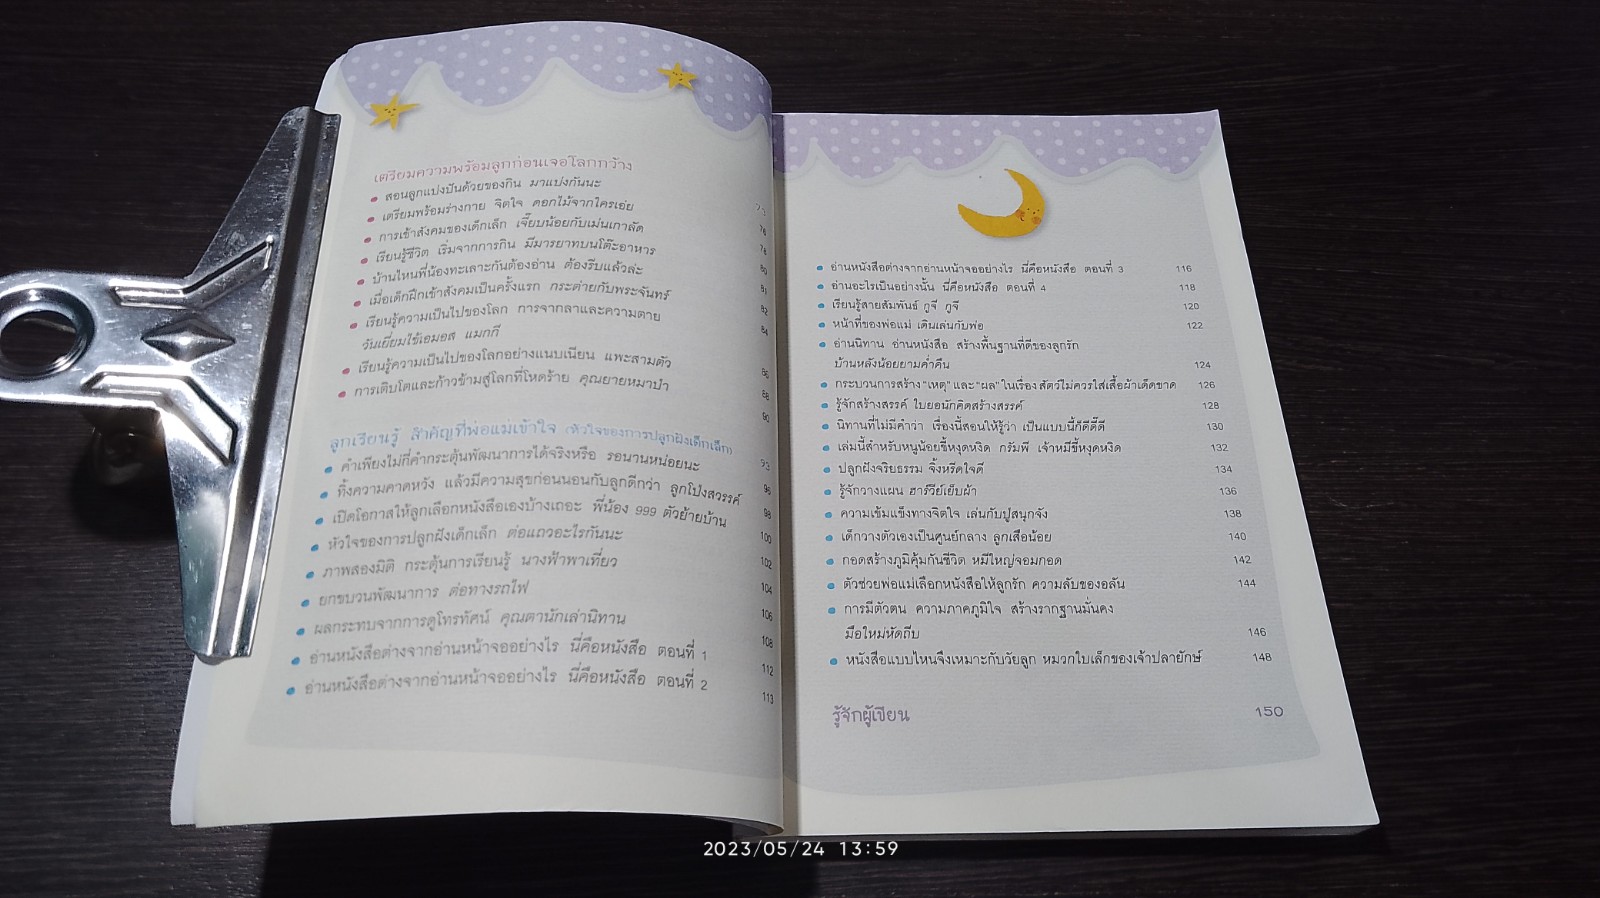 เตรียมความพร้อมลูกก่อนเจอโลกกว้าง 75
สอนลูกแบ่งปันด้วยของกิน มาแบ่งกันนะ 76
เตรียมพร้อมร่างกาย จิตใจ ดอกไม้จากใครเอ่ย 78
การเข้าสังคมของเด็กเล็ก เจี๊ยบน้อยกับเม่นเกาลัด 80
เรียนรู้ชีวิต เริ่มจากการกิน มีมารยาทบนโต๊ะอาหาร 81
บ้านไหนพี่น้องทะเลาะกันต้องอ่าน ต้องรีบแล้วล่ะ 82
เมื่อเด็กฝึกเข้าสังคมเป็นครั้งแรก กระต่ายกับพระจันทร์ 84
เรียนรู้ความเป็นไปของโลก การจากลาและความตาย
วันเยี่ยมไข้เอมอส แมกกี 86
เรียนรู้ความเป็นไปของโลกอย่างแนบเนียน แพะสามตัว 88
การเติบโตและก้าวข้ามสู่โลกที่โหดร้าย คุณยายหมาป่า 90
ลูกเรียนรู้ สำคัญที่พ่อแม่เข้าใจ (หัวใจของการปลูกฝังเด็กเล็ก) 95
คำเพียงไม่กี่คำกระตุ้นพัฒนาการได้จริงหรือ รอนานหน่อยนะ 96
ทิ้งความคาดหวัง แล้วมีความสุขก่อนนอนกับลูกดีกว่า ลูกโป่งสวรรค์ 98
เปิดโอกาสให้ลูกเลือกหนังสือเองบ้างเถอะ พี่น้อง 999 ตัวย้ายบ้าน 100
หัวใจของการปลูกฝังเด็กเล็ก ต่อแถวอะไรกันนะ 102
ภาพสองมิติ กระตุ้นการเรียนรู้ นางฟ้าพาเที่ยว 104
ยกขบวนพัฒนาการ ต่อทางรถไฟ 106
ผลกระทบจากการดูโทรทัศน์ คุณตานักเล่านิทาน 108
อ่านหนังสือต่างจากอ่านหน้าจออย่างไร นี่คือหนังสือ ตอนที่ 1 112
อ่านหนังสือต่างจากอ่านหน้าจออย่างไร นี่คือหนังสือ ตอนที่ 2 113
อ่านหนังสือต่างจากอ่านหน้าจออย่างไร นี่คือหนังสือ ตอนที่ 3 116
อ่านอะไรเป็นอย่างนั้น นี่คือหนังสือ ตอนที่ 4 118
เรียนรู้สายสัมพันธ์ กูจี กูจี 120
หน้าที่ของพ่อแม่ เดินเล่นกับพ่อ 122
อ่านนิทาน อ่านหนังสือ สร้างพื้นฐานที่ดีของลูกรัก
บ้านหลังน้อยยามค่ำคืน 124
กระบวนการสร้าง "เหตุ" และ "ผล" ในเรื่อง สัตว์ไม่ควรใส่เสื้อผ้าเด็ดขาด 126
รู้จักสร้างสรรค์ ใบยอนักคิดสร้างสรรค์ 128
นิทานที่ไม่มีคำว่า เรื่องนี้สอนให้รู้ว่า เป็นแบบนี้ก็ดีดี๊ดี 130
เล่มนี้สำหรับหนูน้อยขี้หงุดหงิด กรัมพี เจ้าหมีขี้หงุดหงิด 132
ปลูกฝังจริยธรรม จิ้งหรีดใจดี 134
รู้จักวางแผน ฮาร์วีย์เย็บผ้า 136
ความเข้มแข็งทางจิตใจ เล่นกับปู่สนุกจัง 138
เด็กวางตัวเองเป็นศูนย์กลาง ลูกเสือน้อย 140
กอดสร้างภูมิคุ้มกันชีวิต หมีใหญ่จอมกอด 142
ตัวช่วยพ่อแม่เลือกหนังสือให้ลูกรัก ความลับของอลัน 144
การมีตัวตน ความภาคภูมิใจ สร้างรากฐานมั่นคง
มือใหม่หัดถีบ 146
หนังสือแบบไหนจึงเหมาะกับวัยลูก หมวกใบเล็กของเจ้าปลายักษ์ 148
รู้จักผู้เขียน 150
2023/05/24 13:59